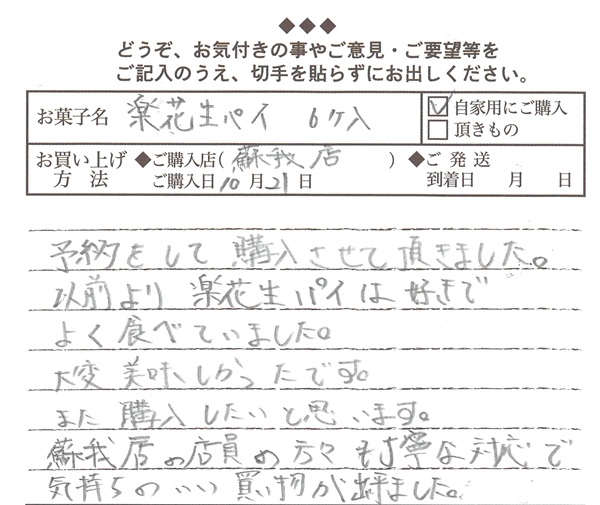 ◆◆◆
どうぞ、お気付きの事やご意見・ご要望等を
ご記入のうえ、切手を貼らずにお出しください。
お菓子名 楽花生パイ 6ケ入
☑自家用にご購入
□頂きもの
お買い上げ方法 ◆ご購入店(蘇我店) ◆ご発送
ご購入日10月21日 到着日 月 日
予約をして購入させて頂きました。
以前より楽花生パイは好きで
よく食べていました。
大変美味しかったです。
また購入したいと思います。
蘇我店の店員の方々も丁寧な対応で
気持ちのいい買い物が出来ました。